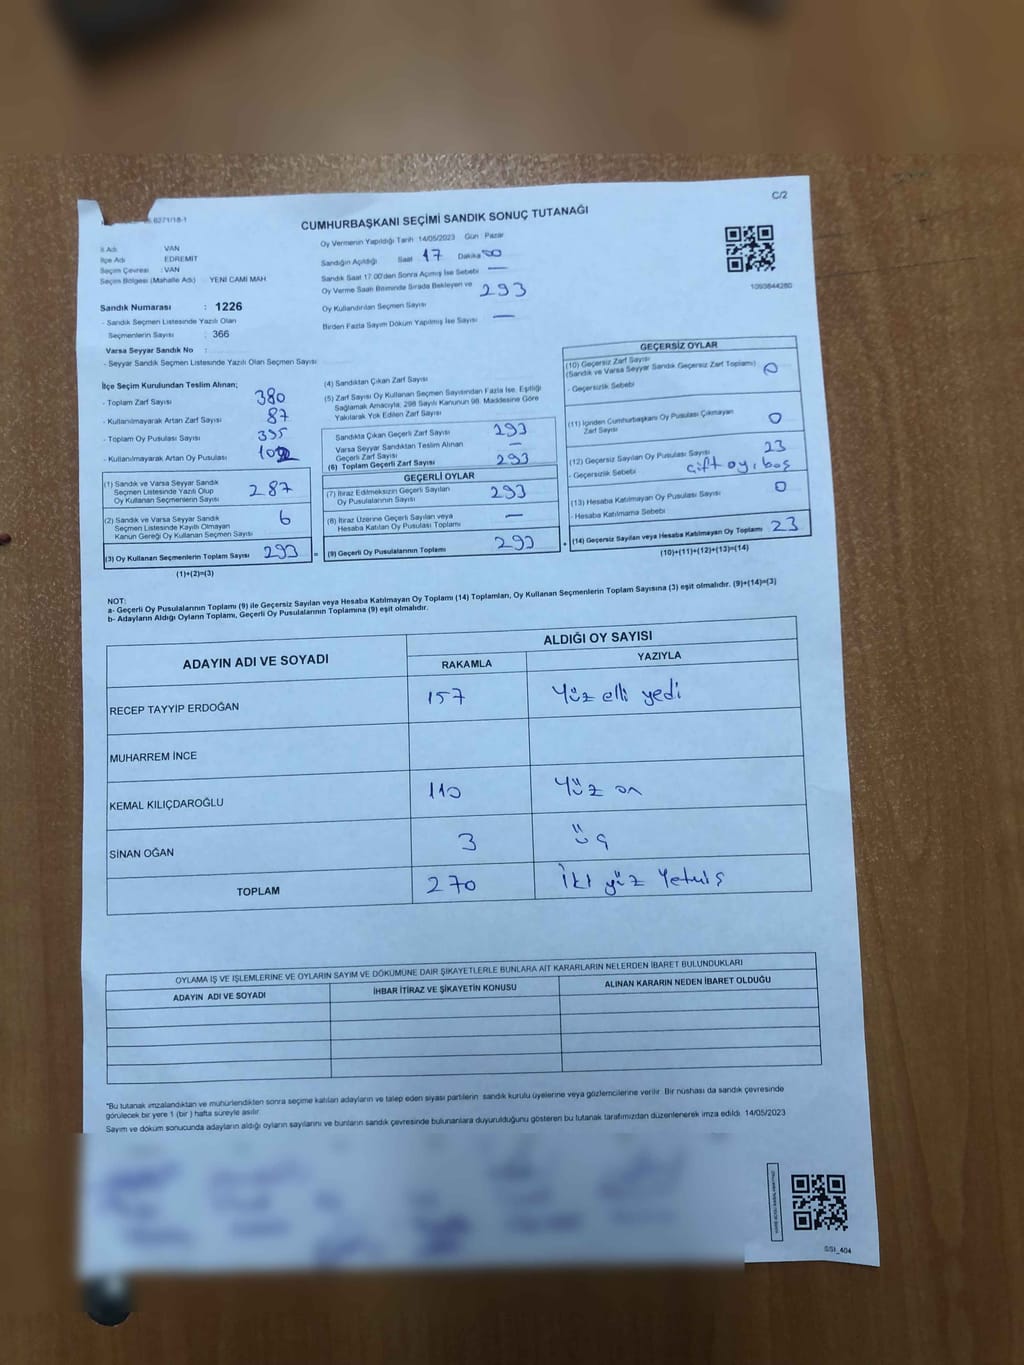 6271/18-1
C/2
CUMHURBAŞKANI SEÇİMİ SANDIK SONUÇ TUTANAĞI
İl Adı : VAN
İlçe Adı : EDREMİT
Seçim Çevresi : VAN
Seçim Bölgesi (Mahalle Adı) : YENİ CAMİ MAH
Sandık Numarası : 1226
- Sandık Seçmen Listesinde Yazılı Olan
Seçmenlerin Sayısı : 366
Varsa Seyyar Sandık No :
- Seyyar Sandık Seçmen Listesinde Yazılı Olan Seçmen Sayısı
Oy Vermenin Yapıldığı Tarih : 14/05/2023 Gün : Pazar
Sandığın Açıldığı Saat 17 Dakika 00
Sandık Saat 17:00'den Sonra Açımış İse Sebebi —
Oy Verme Saati Bitiminde Sırada Bekleyen ve
Oy Kullandırılan Seçmen Sayısı 293
Birden Fazla Sayım Döküm Yapılmış İse Sayısı —
1093844280
İlçe Seçim Kurulundan Teslim Alınan;
- Toplam Zarf Sayısı 380
- Kullanılmayarak Artan Zarf Sayısı 87
- Toplam Oy Pusulası Sayısı 395
- Kullanılmayarak Artan Oy Pusulası
(1) Sandık ve Varsa Seyyar Sandık
Seçmen Listesinde Yazılı Olup
Oy Kullanan Seçmenlerin Sayısı 287
(2) Sandık ve Varsa Seyyar Sandık
Seçmen Listesinde Kayıtlı Olmayan
Kanun Gereği Oy Kullanan Seçmen Sayısı 6
(3) Oy Kullanan Seçmenlerin Toplam Sayısı 293
(1)+(2)=(3)
(4) Sandıktan Çıkan Zarf Sayısı
(5) Zarf Sayısı Oy Kullanan Seçmen Sayısından Fazla İse, Eşitliği
Sağlamak Amacıyla; 298 Sayılı Kanunun 98. Maddesine Göre
Yakılarak Yok Edilen Zarf Sayısı
Sandıkta Çıkan Geçerli Zarf Sayısı 293
Varsa Seyyar Sandıktan Teslim Alınan
Geçerli Zarf Sayısı —
(6) Toplam Geçerli Zarf Sayısı 293
GEÇERLİ OYLAR
(7) İtiraz Edilmeksizin Geçerli Sayılan
Oy Pusulalarının Sayısı 293
(8) İtiraz Üzerine Geçerli Sayılan veya
Hesaba Katılan Oy Pusulası Toplamı —
= (9) Geçerli Oy Pusulalarının Toplamı 293
GEÇERSİZ OYLAR
(10) Geçersiz Zarf Sayısı
(Sandık ve Varsa Seyyar Sandık Geçersiz Zarf Toplamı) 0
- Geçersizlik Sebebi
(11) İçinden Cumhurbaşkanı Oy Pusulası Çıkmayan
Zarf Sayısı 0
(12) Geçersiz Sayılan Oy Pusulası Sayısı 23
- Geçersizlik Sebebi çift oy, boş
(13) Hesaba Katılmayan Oy Pusulası Sayısı 0
- Hesaba Katılmama Sebebi
+ (14) Geçersiz Sayılan veya Hesaba Katılmayan Oy Toplamı 23
(10)+(11)+(12)+(13)=(14)
NOT:
a- Geçerli Oy Pusulalarının Toplamı (9) ile Geçersiz Sayılan veya Hesaba Katılmayan Oy Toplamı (14) Toplamları, Oy Kullanan Seçmenlerin Toplam Sayısına (3) eşit olmalıdır. (9)+(14)=(3)
b- Adayların Aldığı Oyların Toplamı, Geçerli Oy Pusulalarının Toplamına (9) eşit olmalıdır.
ADAYIN ADI VE SOYADI
ALDIĞI OY SAYISI
RAKAMLA YAZIYLA
RECEP TAYYİP ERDOĞAN 157 Yüz elli yedi
MUHARREM İNCE
KEMAL KILIÇDAROĞLU 110 Yüz on
SİNAN OĞAN 3 üç
TOPLAM 270 İki yüz Yetmiş
OYLAMA İŞ VE İŞLEMLERİNE VE OYLARIN SAYIM VE DÖKÜMÜNE DAİR ŞİKAYETLERLE BUNLARA AİT KARARLARIN NELERDEN İBARET BULUNDUKLARI
ADAYIN ADI VE SOYADI İHBAR İTİRAZ VE ŞİKAYETİN KONUSU ALINAN KARARIN NEDEN İBARET OLDUĞU
*Bu tutanak imzalandıktan ve mühürlendikten sonra seçime katılan adayların ve talep eden siyasi partilerin sandık kurulu üyelerine veya gözlemcilerine verilir. Bir nüshası da sandık çevresinde
görülecek bir yere 1 (bir ) hafta süreyle asılır.
Sayım ve döküm sonucunda adayların aldığı oyların sayılarını ve bunların sandık çevresinde bulunanlara duyurulduğunu gösteren bu tutanak tarafımızdan düzenlenerek imza edildi. 14/05/2023
SSI_404